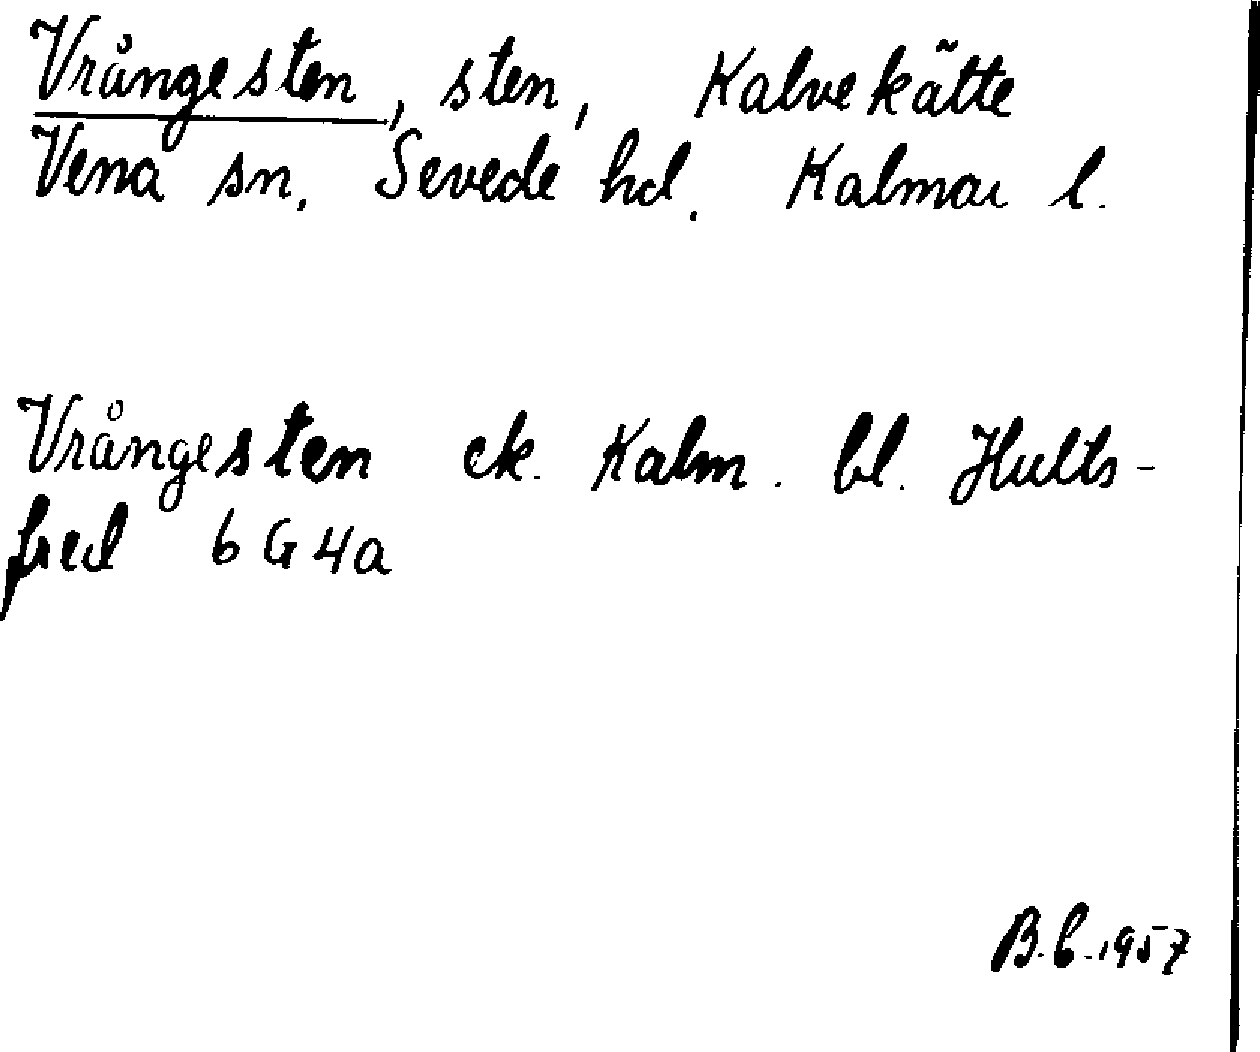 Vrångesten, sten, Kalvekätte
Vena sn, Sevede hd, Kalmar l.
Vrångesten ek. Kalm. bl. Hults-
fred 6 G 4a
B.b. 1957